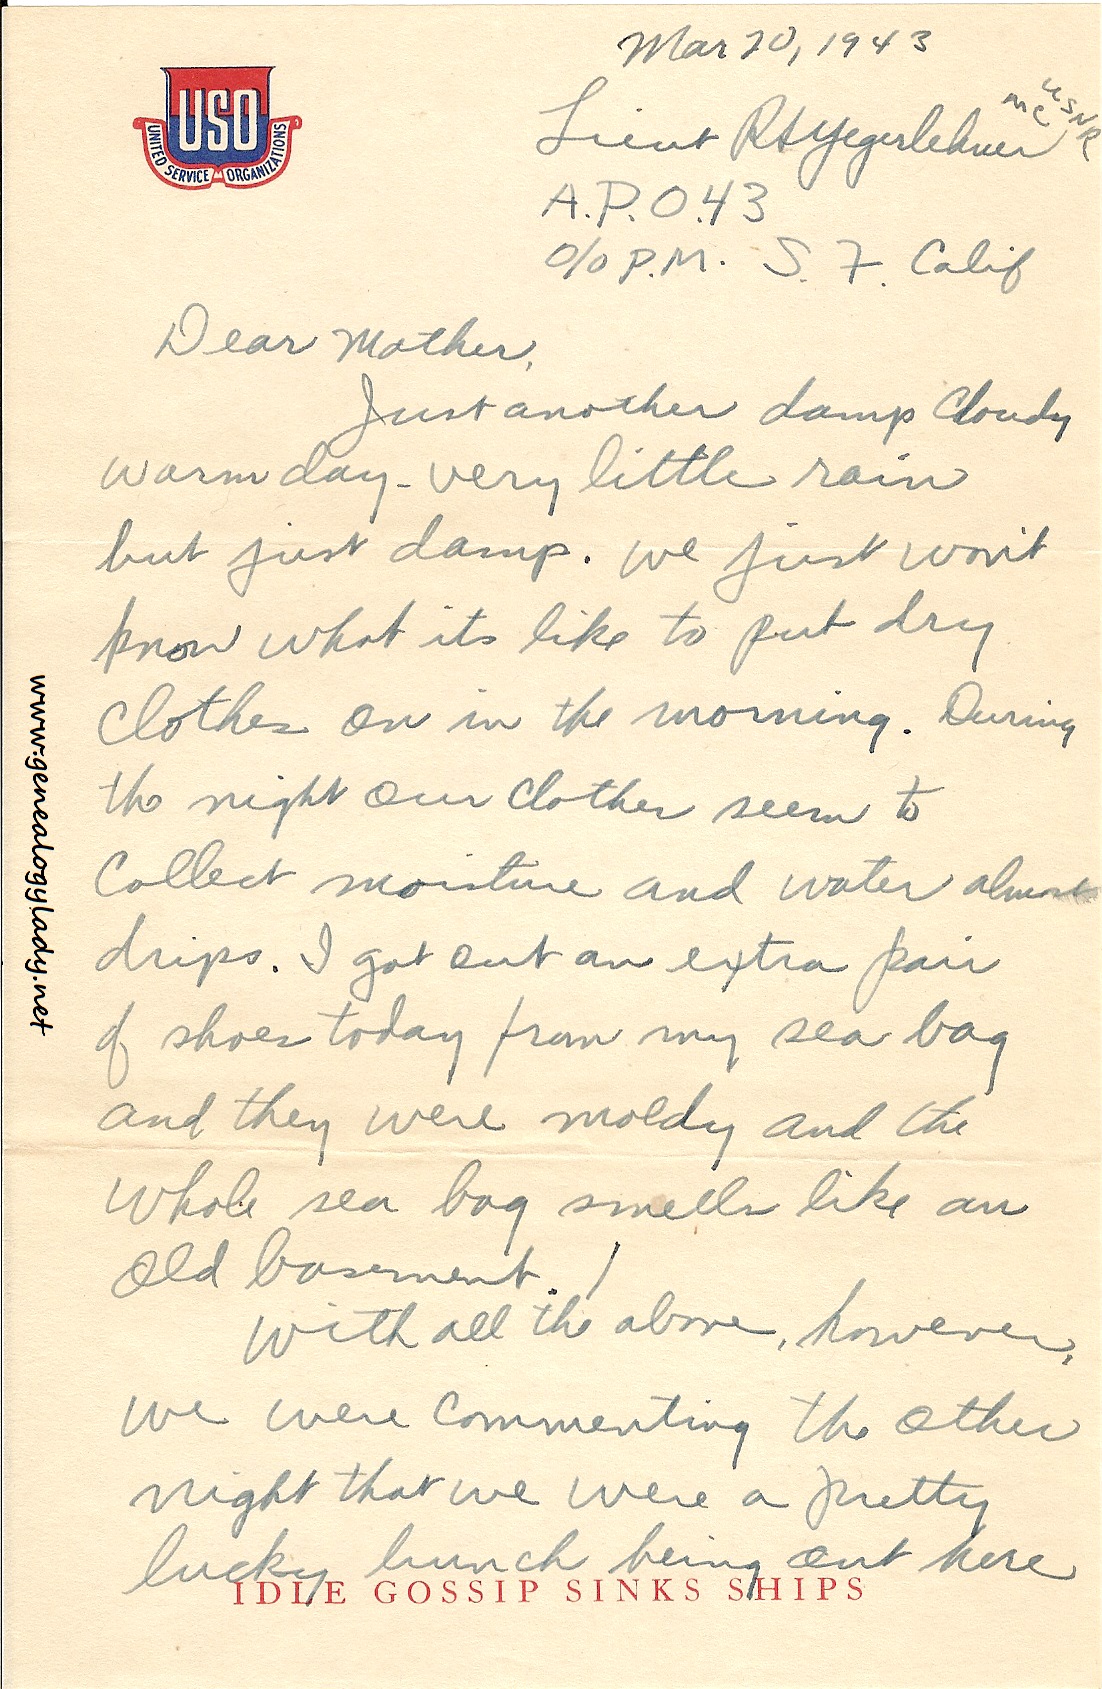 Mar 20, 1943
USO
UNITED SERVICE ORGANIZATIONS
Lieut R H Yegerlehner MC USNR
A.P.O. 43
c/o P.M. S. F. Calif
Dear Mother,
Just another damp cloudy
warm day - very little rain
but just damp. We just won't
know what its like to put dry
clothes on in the morning. During
the night our clothes seem to
collect moisture and water almost
drips. I got out an extra pair
of shoes today from my sea bag
and they were moldy and the
whole sea bag smells like an
old basement.!
With all the above, however,
we were commenting the other
night that we were a pretty
lucky bunch being out here
IDLE GOSSIP SINKS SHIPS
www.genealogylady.net